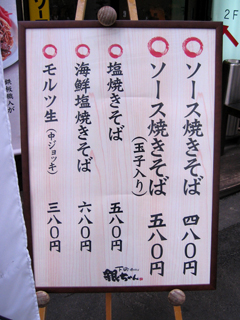 ソース焼きそば 四八〇円
ソース焼きそば 五八〇円
(玉子入り)
塩焼きそば 五八〇円
海鮮塩焼きそば 六八〇円
モルツ生(中ジョッキ) 三八〇円
銀ちゃん
2F